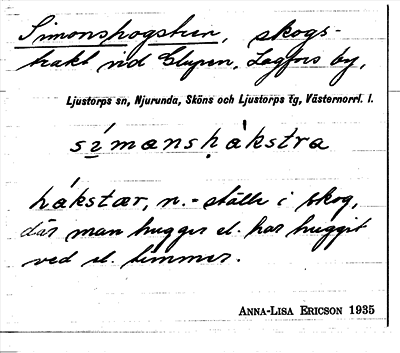 Simonshogstren, skogs-
trakt vid Glupen, Lagfors by,
Ljustorps sn, Njurunda, Sköns och Ljustorps tg, Västernorrl. l.
símanshákstra
hákstær, n. - ställe i skog,
där man hugger el. har huggit
ved el. timmer.
ANNA-LISA ERICSON 1935